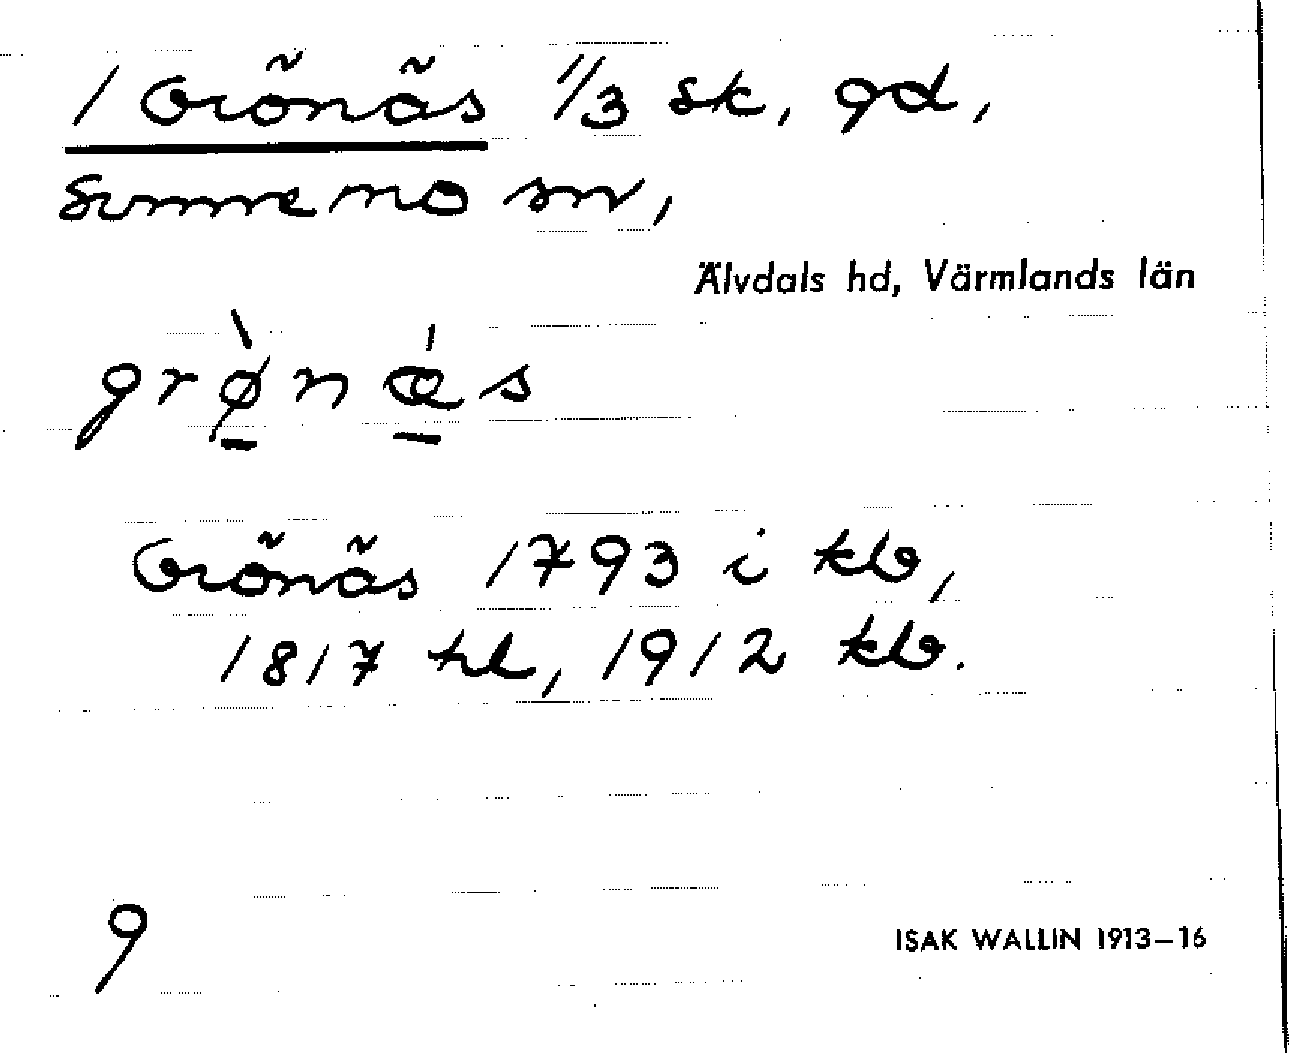 1 Grönäs 1/3 sk, gd,
Sunnemo sn,
Älvdals hd, Värmlands län
grø̀næ̍s
Grönäs 1793 i kb,
1817 hl, 1912 kb.
9
ISAK WALLIN 1913–16